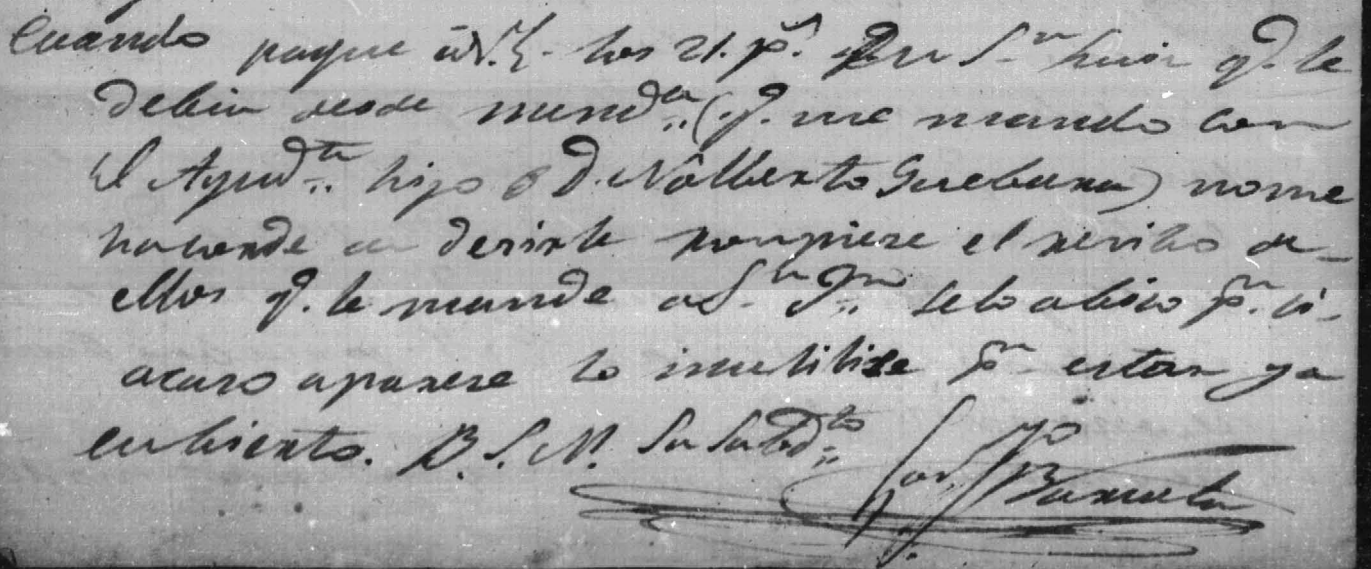 Cuando pague á V.E. los 21. p.s S.n Luis q.e le
debia desde mend.za (q.e me mando con
el Ayud.te hijo D. Nolberto Guebara) nome
hacorde a desirle rompiese el resibo de
ellos q.e le mande a S.n Ju.n selo abiso p.r si
acaso aparese lo inutilise p.r estar ya
cubierto. B. S. M. Su Subd.to